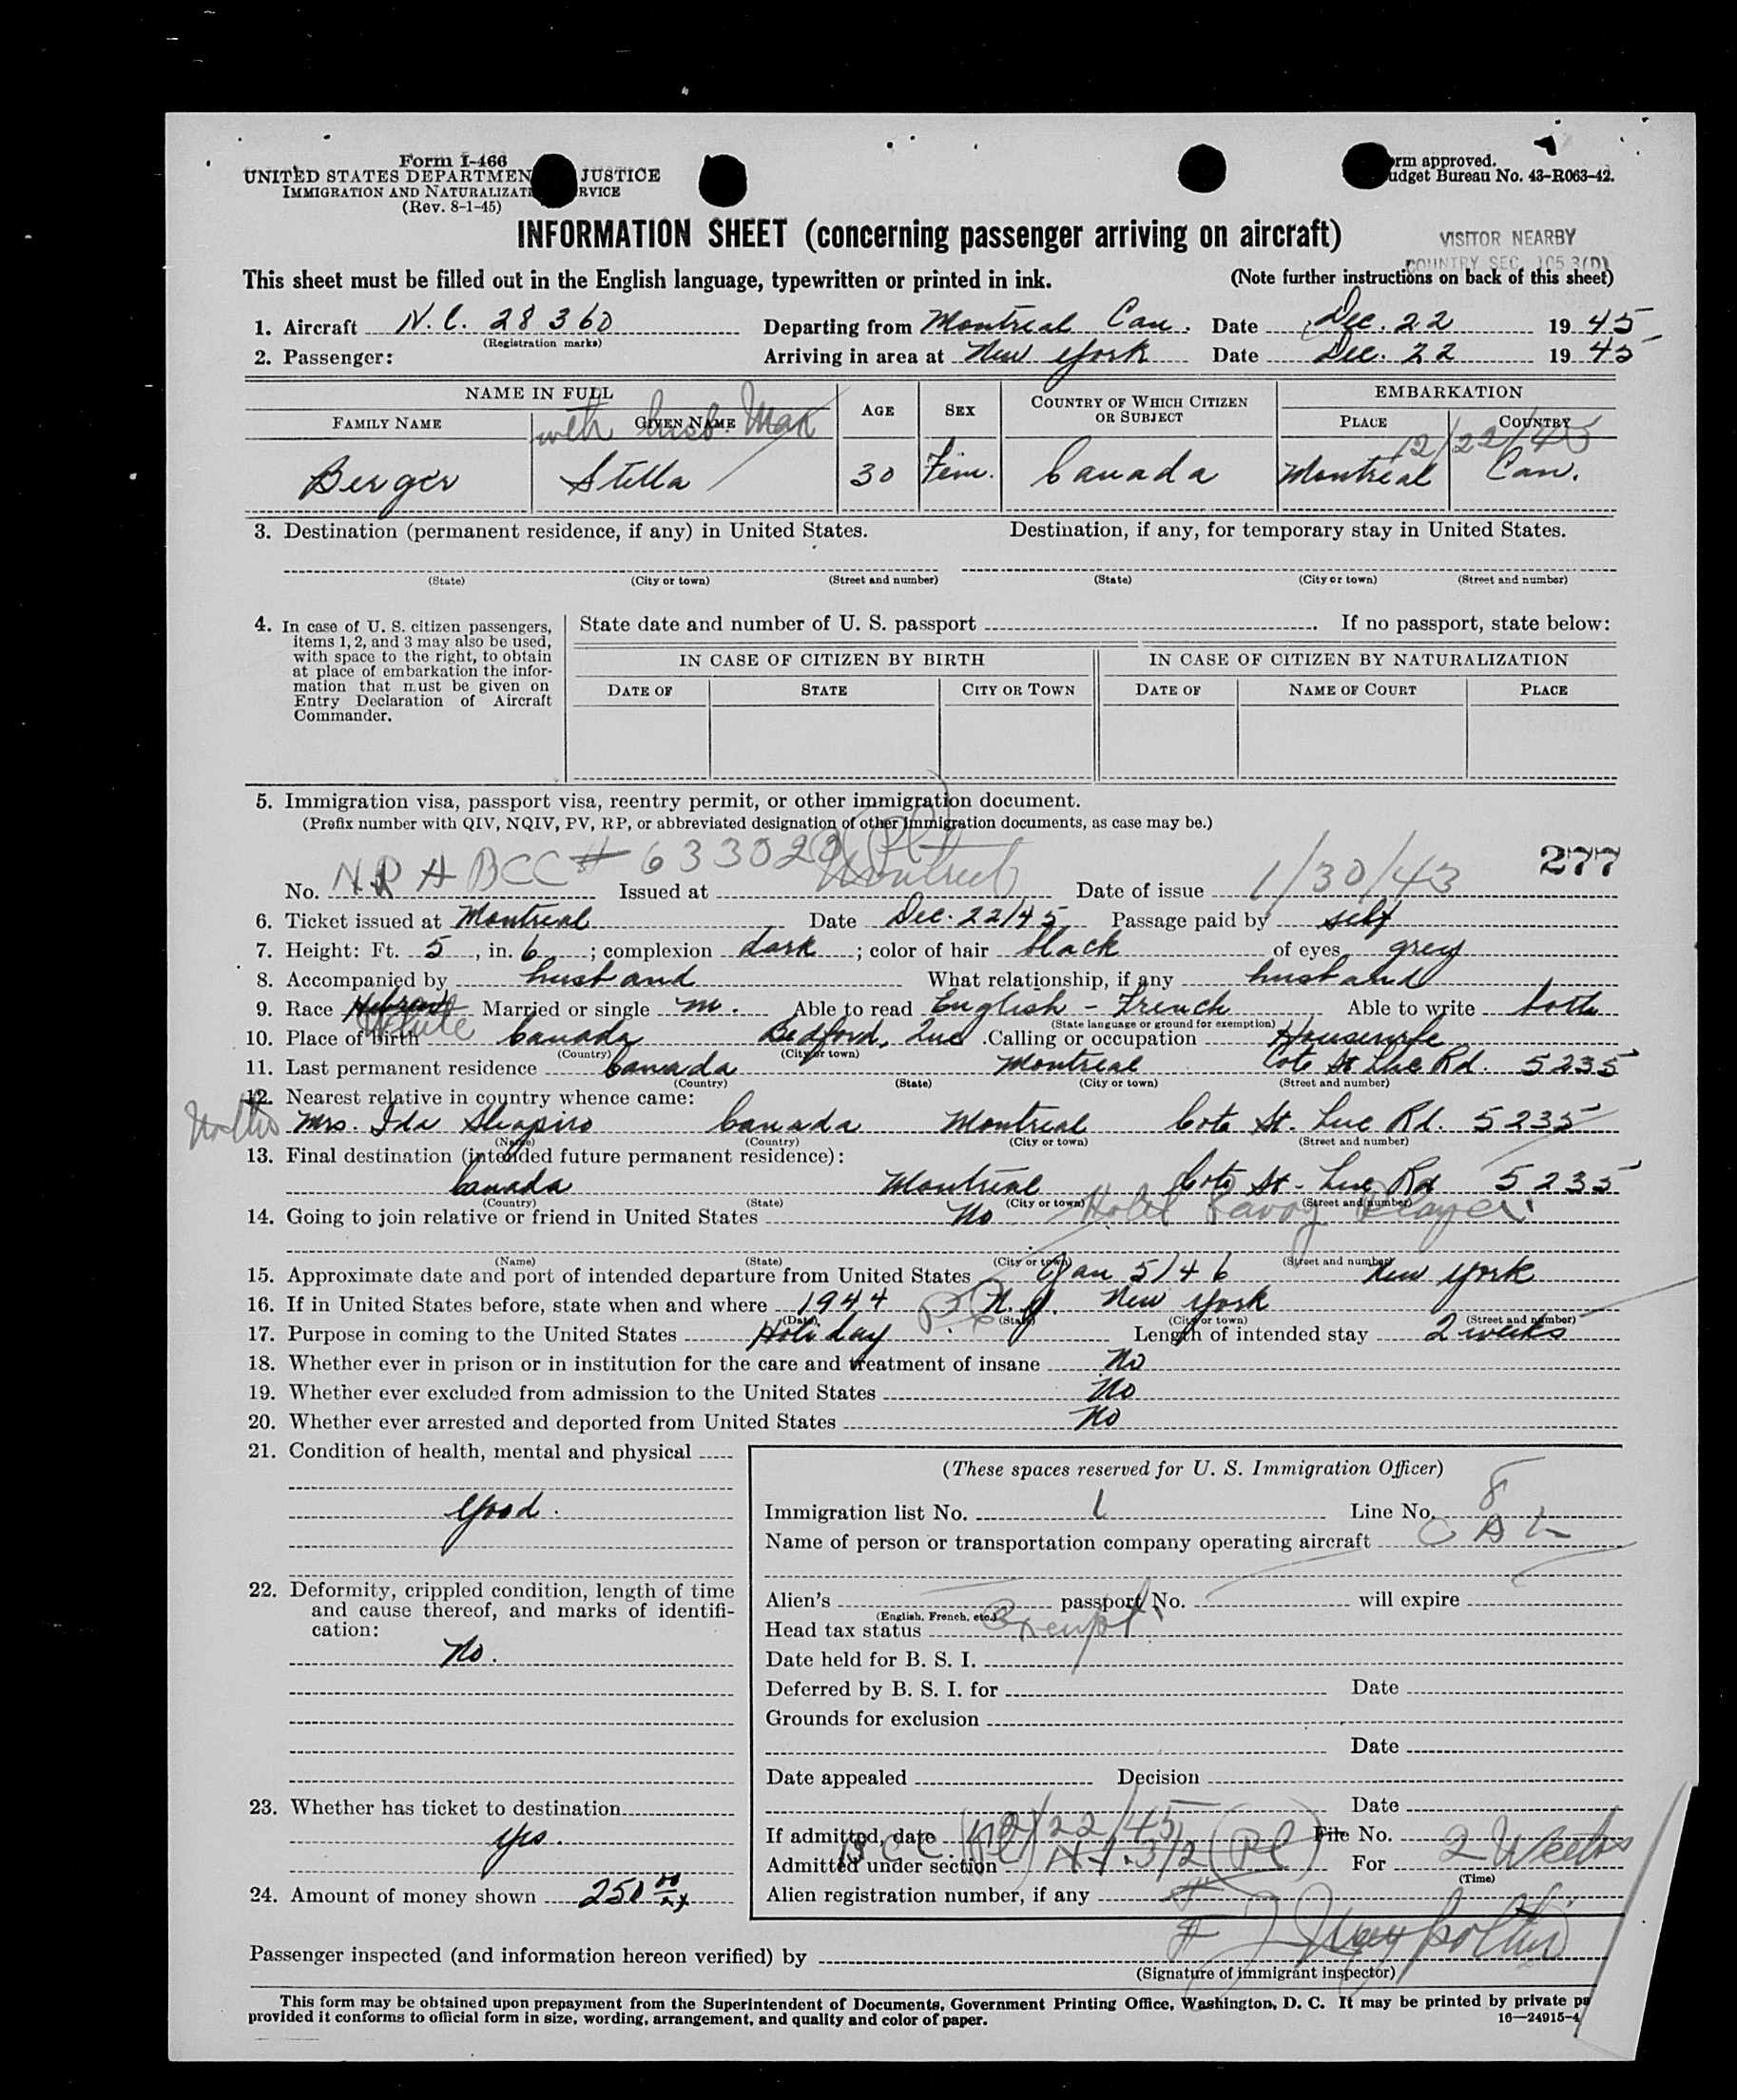 Form I-466
UNITED STATES DEPARTMEN JUSTICE
IMMIGRATION AND NATURALIZATI RVICE
(Rev. 8-1-45)
rm approved.
udget Bureau No. 43-R063-42.
INFORMATION SHEET (concerning passenger arriving on aircraft)
VISITOR NEARBY
COUNTRY SEC. 105.3(D)
This sheet must be filled out in the English language, typewritten or printed in ink.
(Note further instructions on back of this sheet)
1. Aircraft N.C. 28360 Departing from Montreal Can. Date Dec. 22 1945
(Registration marks)
2. Passenger: Arriving in area at New York Date Dec. 22 1945
NAME IN FULL AGE SEX COUNTRY OF WHICH CITIZEN OR SUBJECT EMBARKATION
FAMILY NAME GIVEN NAME PLACE COUNTRY
with husb. Max 12/22/45
Berger Stella 30 Fem. Canada Montreal Can.
3. Destination (permanent residence, if any) in United States. Destination, if any, for temporary stay in United States.
(State) (City or town) (Street and number) (State) (City or town) (Street and number)
4. In case of U. S. citizen passengers, items 1, 2, and 3 may also be used, with space to the right, to obtain at place of embarkation the information that must be given on Entry Declaration of Aircraft Commander.
State date and number of U. S. passport . If no passport, state below:
IN CASE OF CITIZEN BY BIRTH IN CASE OF CITIZEN BY NATURALIZATION
DATE OF STATE CITY OR TOWN DATE OF NAME OF COURT PLACE
5. Immigration visa, passport visa, reentry permit, or other immigration document.
(Prefix number with QIV, NQIV, PV, RP, or abbreviated designation of other immigration documents, as case may be.)
277
No. BCC # 633020 (Pl) Issued at Montreal Date of issue 1/30/43
6. Ticket issued at Montreal Date Dec. 22/45 Passage paid by self
7. Height: Ft. 5, in. 6; complexion dark; color of hair black of eyes grey
8. Accompanied by husband What relationship, if any husband
9. Race Hebrew Married or single m. Able to read English - French Able to write both
White (State language or ground for exemption)
10. Place of birth Canada Bedford, Que. Calling or occupation Housewife
(Country) (City or town)
11. Last permanent residence Canada Montreal Cote St Luc Rd. 5235
(Country) (State) (City or town) (Street and number)
12. Nearest relative in country whence came:
Mother Mrs. Ida Shapiro Canada Montreal Cote St. Luc Rd. 5235
(Name) (Country) (City or town) (Street and number)
13. Final destination (intended future permanent residence):
Canada Montreal Cote St. Luc Rd 5235
(Country) (State) (City or town) (Street and number)
14. Going to join relative or friend in United States No Hotel Savoy
(Name) (State) (City or town) (Street and number)
15. Approximate date and port of intended departure from United States Jan 5/46 New York
16. If in United States before, state when and where 1944 N.Y. New York
(Date) (State) (City or town) (Street and number)
17. Purpose in coming to the United States Holiday Length of intended stay 2 weeks
18. Whether ever in prison or in institution for the care and treatment of insane No
19. Whether ever excluded from admission to the United States No
20. Whether ever arrested and deported from United States No
21. Condition of health, mental and physical
Good.
22. Deformity, crippled condition, length of time and cause thereof, and marks of identification:
No.
23. Whether has ticket to destination
Yes.
24. Amount of money shown 250
(These spaces reserved for U. S. Immigration Officer)
Immigration list No. 1 Line No. 8
Name of person or transportation company operating aircraft
Alien's passport No. will expire
(English, French, etc.)
Head tax status Exempt
Date held for B. S. I.
Deferred by B. S. I. for Date
Grounds for exclusion
Date
Date appealed Decision
Date
If admitted, date 12/22/45 File No.
Admitted under section (Pl) For 2 Weeks
(Time)
Alien registration number, if any
Passenger inspected (and information hereon verified) by
(Signature of immigrant inspector)
This form may be obtained upon prepayment from the Superintendent of Documents, Government Printing Office, Washington, D. C. It may be printed by private pa
provided it conforms to official form in size, wording, arrangement, and quality and color of paper. 16—24915-4